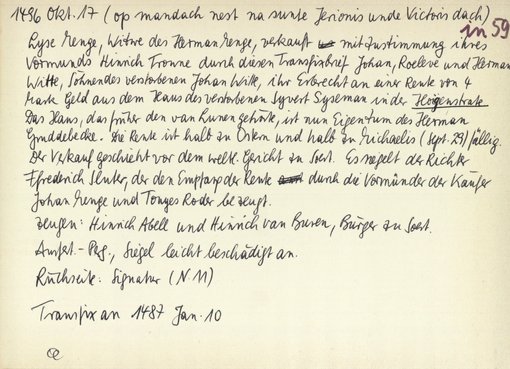 1486 Okt. 17 (op mandach nest na sunte Jerionis unde Victoris dach)
in 59
Lyse Menge, Witwe des Herman Menge, verkauft mit Zustimmung ihres
Vormunds Hinrich Tronne durch diesen Transfixbrief Johan, Roeleve und Herman
Witte, Söhne des verstorbenen Johan Witte, ihr Erbrecht an einer Rente von 4
Mark Geld aus dem Haus des verstorbenen Syvert Syseman in der Hoigenstrate
Das Haus, das früher den van Lunen gehörte, ist nun Eigentum des Herman
Gruddebecke. Die Rente ist halb zu Ostern und halb zu Michaelis (Sept. 29) fällig.
Der Verkauf geschieht vor dem weltl. Gericht zu Soest. Es siegelt der Richter
Ffrederich Sluter, der den Empfang der Rente durch die Vormünder der Käufer
Johan Menge und Tonges Roder bezeugt.
Zeugen: Hinrich Abell und Hinrich van Buren, Bürger zu Soest.
Ausfert.-Perg., Siegel leicht beschädigt an.
Rückseite: Signatur (N 11)
Transfix an 1487 Jan. 10